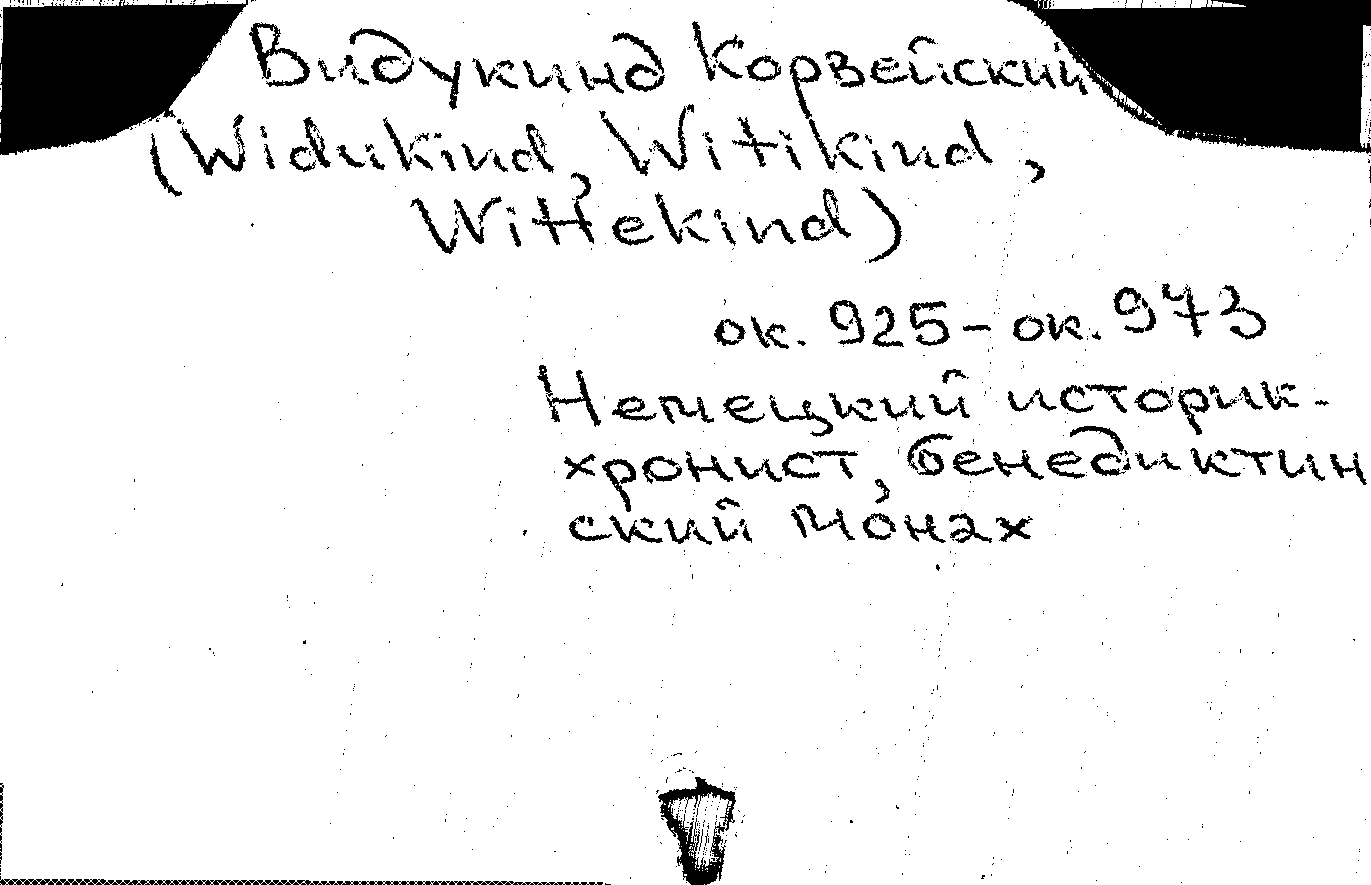 Видукинд Корвейский
(Widukind, Witikind,
Wittekind)
ок. 925 - ок. 973
Немецкий историк-
хронист, бенедиктин
ский монах